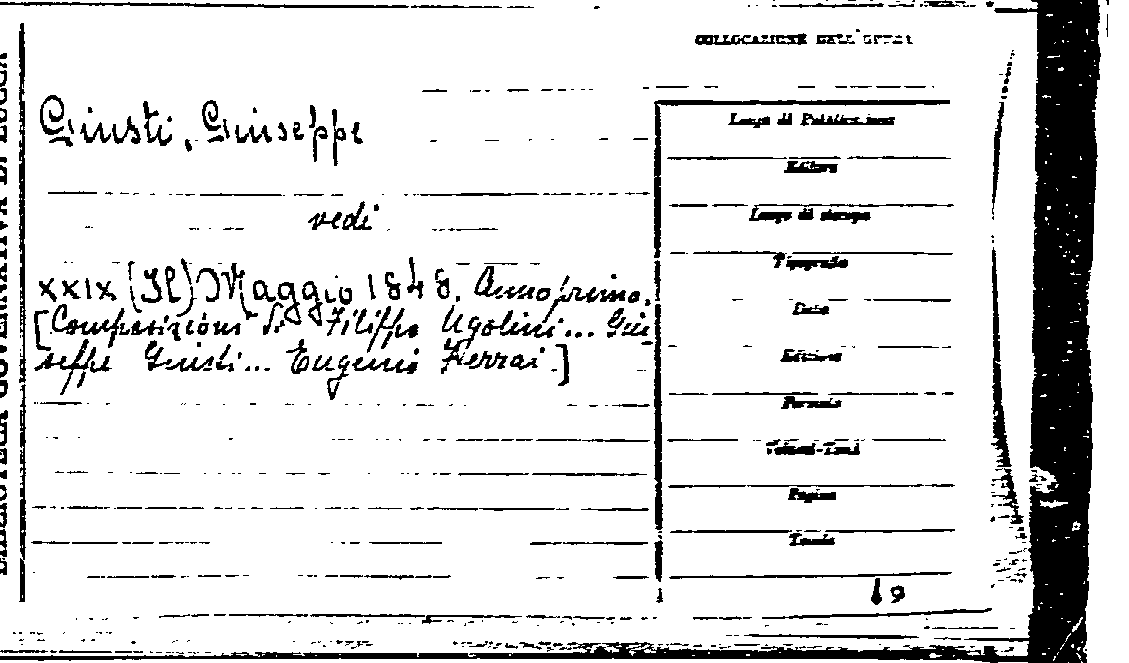 BIBLIOTECA GOVERNATIVA DI LUCCA
COLLOCAZIONE DELL'OPERA
Giusti, Giuseppe
vedi
XXIX (Il) Maggio 1848. Anno primo.
[Composizioni di Filippo Ugolini... Giu
seppe Giusti... Eugenio Ferrai.]
Luogo di Pubblicazione
Editore
Luogo di stampa
Tipografia
Data
Edizione
Formato
Volumi-Tomi
Pagine
Tavole